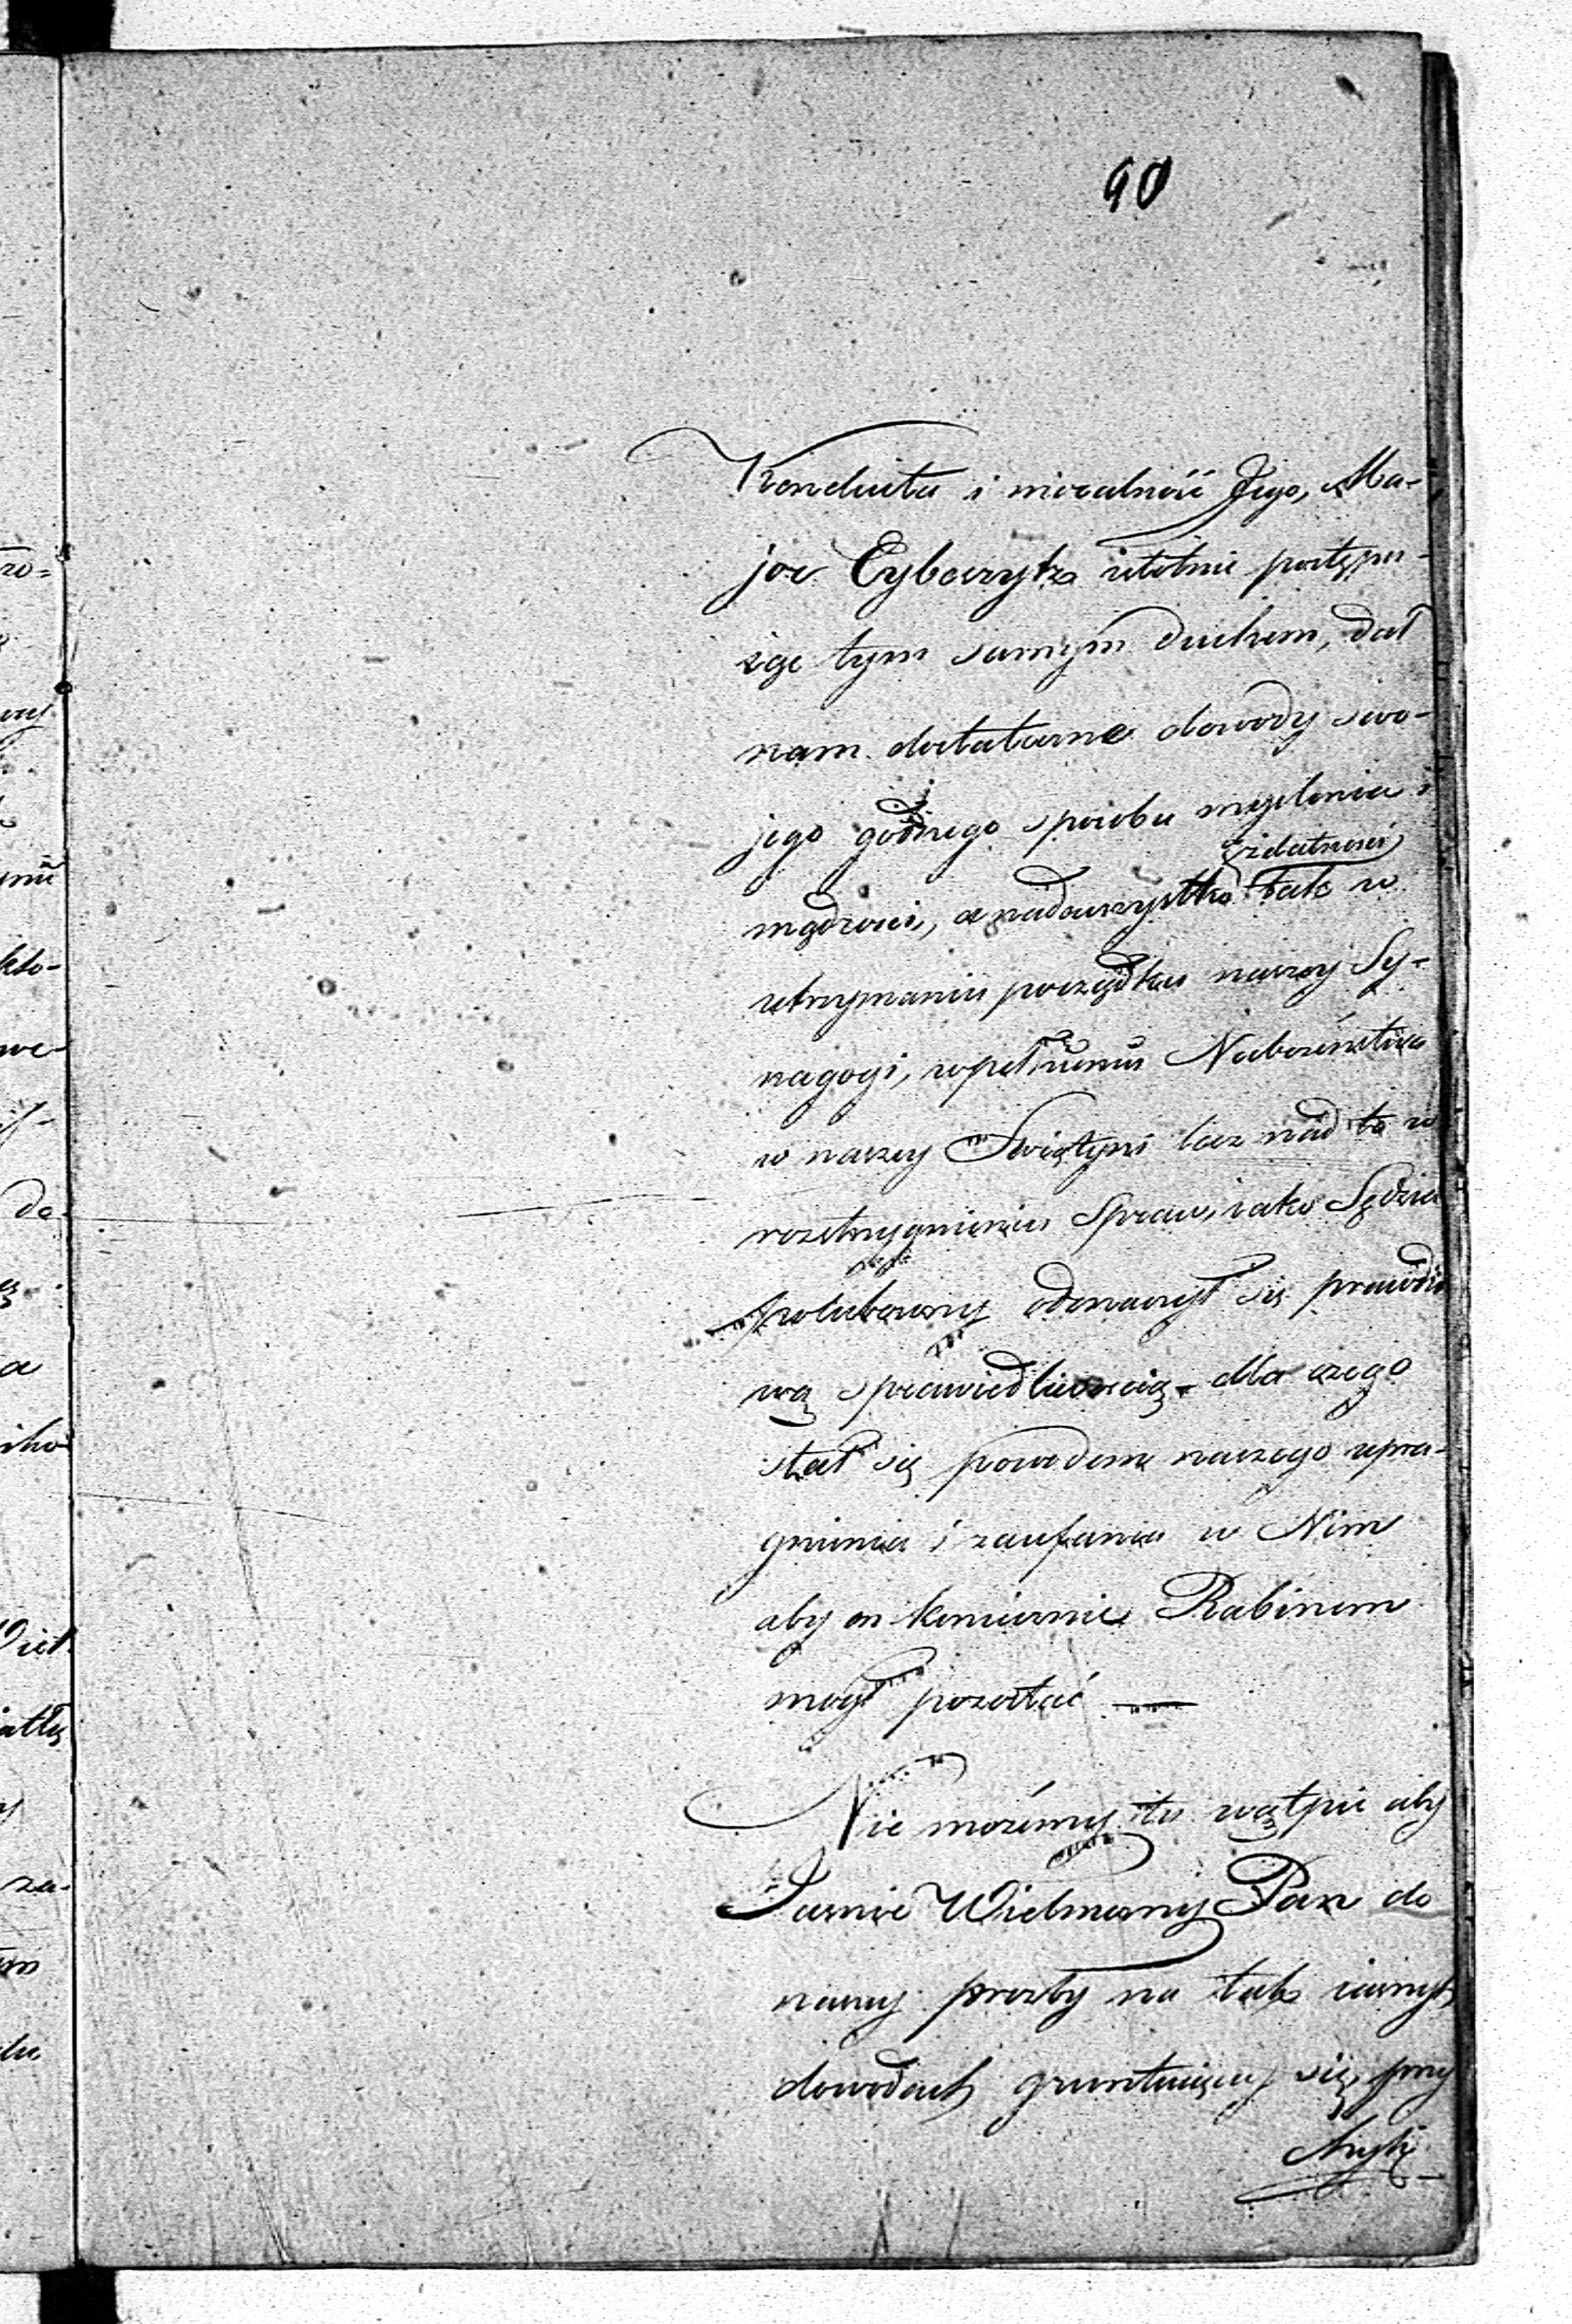 90
Konduita i moralność Jego, Ma-
jor Cybarytza istotnie postępu-
iąc tym samym duchem, dał
nam dostateczne dowody swo-
jego godnego sposobu myslenia i
zdatności
mądrości, a nadewszystko tak w
utrzymaniu porządku naszey Sy-
nagogi, wpełnieniu Nabożeństwa
w naszey Swiątyni lecz nad to w
rozstrzygnieniu Spraw, iako Sędzia
polubowny odznaczył się prawdzi
wą sprawiedliwością - dla czego
stał się powodem naszego upra-
gnienia i zaufania w Nim
aby on koniecznie Rabinem
mógł pozostać —
Nie możemy tu wątpić aby
Jaśnie Wielmożny Pan do
naszey prozby na tak iasnych
dowodach gruntuiącey się, przy
chylić